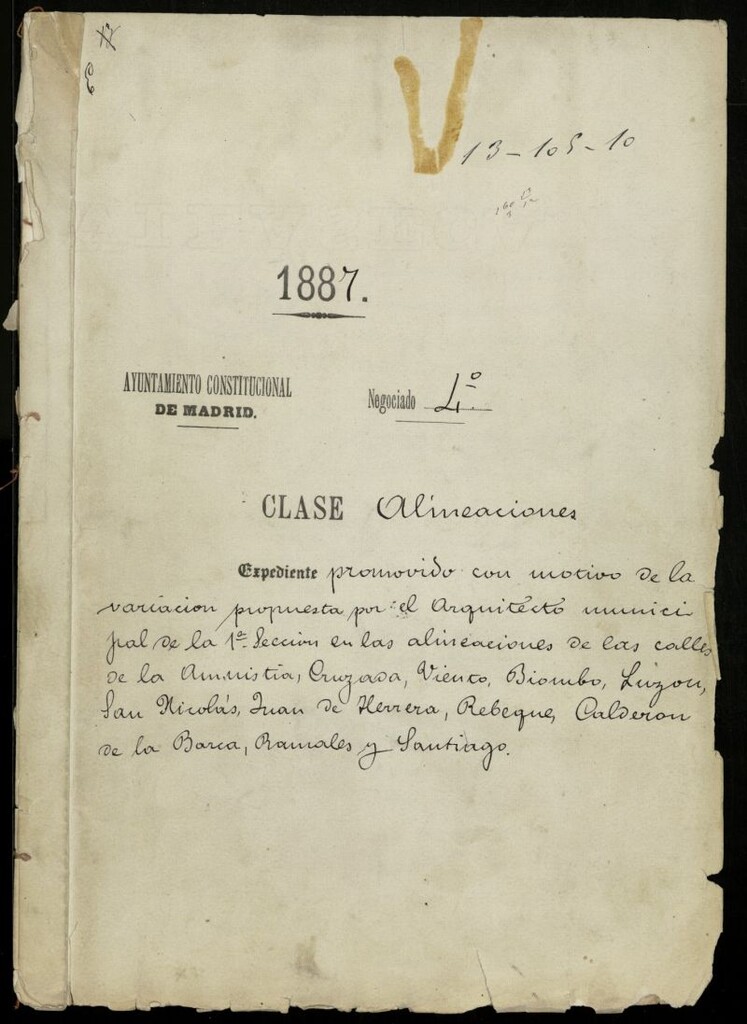 13-105-10
1887.
AYUNTAMIENTO CONSTITUCIONAL
DE MADRID.
Negociado 4º
CLASE Alineaciones
Expediente promovido con motivo de la
variacion propuesta por el Arquitecto munici
pal de la 1ª Seccion en las alineaciones de las calles
de la Amnistia, Cruzada, Viento, Biombo, Luzon,
San Nicolás, Juan de Herrera, Rebeque, Calderon
de la Barca, Ramales y Santiago.